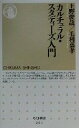 上野俊哉／毛利嘉孝
カルチュラル・
スタディーズ入門
ちくま新書
261